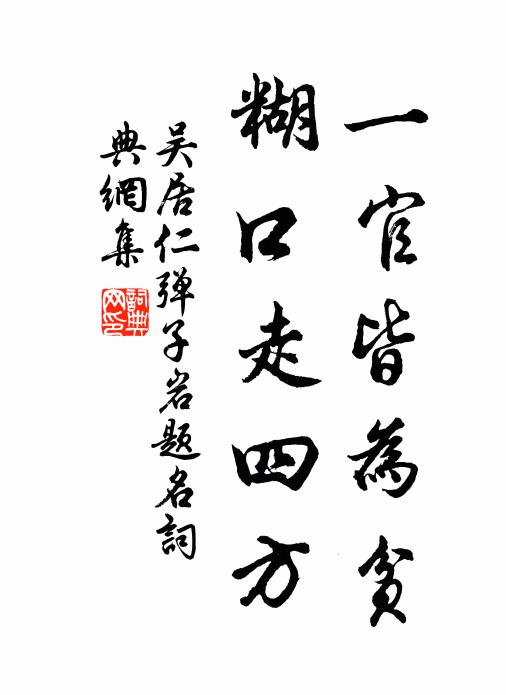 一官皆為貧
糊口走四方
吴居仁弹子岩题名詞
典網集
詞典
网印